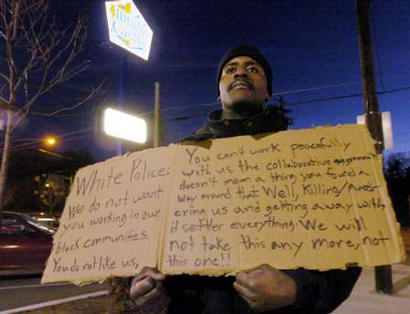 White Police:
We do not want
you working in our
black communities.
You do not like us,
You can't work peacefully
with us the collaborative agreement
doesn't mean a thing you found a
way around that. Well, Killing/
ering us and getting away with
it settler everything. We will
not take this any more, not
this one!!